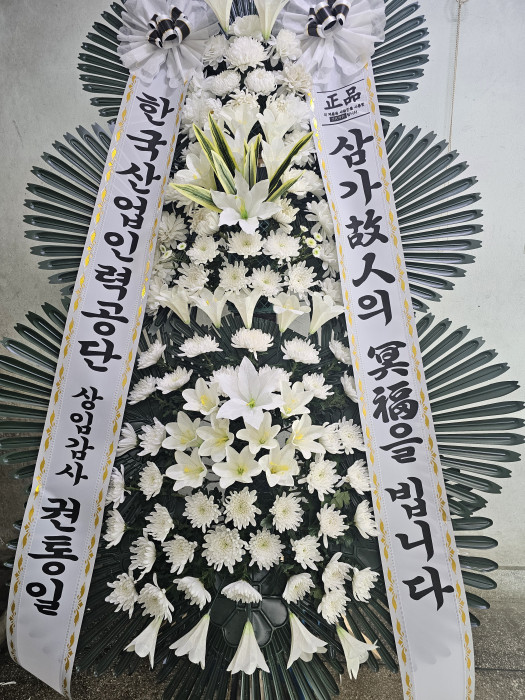 한국산업인력공단 상업감사 권통일
正品
삼가 故人의 冥福을 빕니다